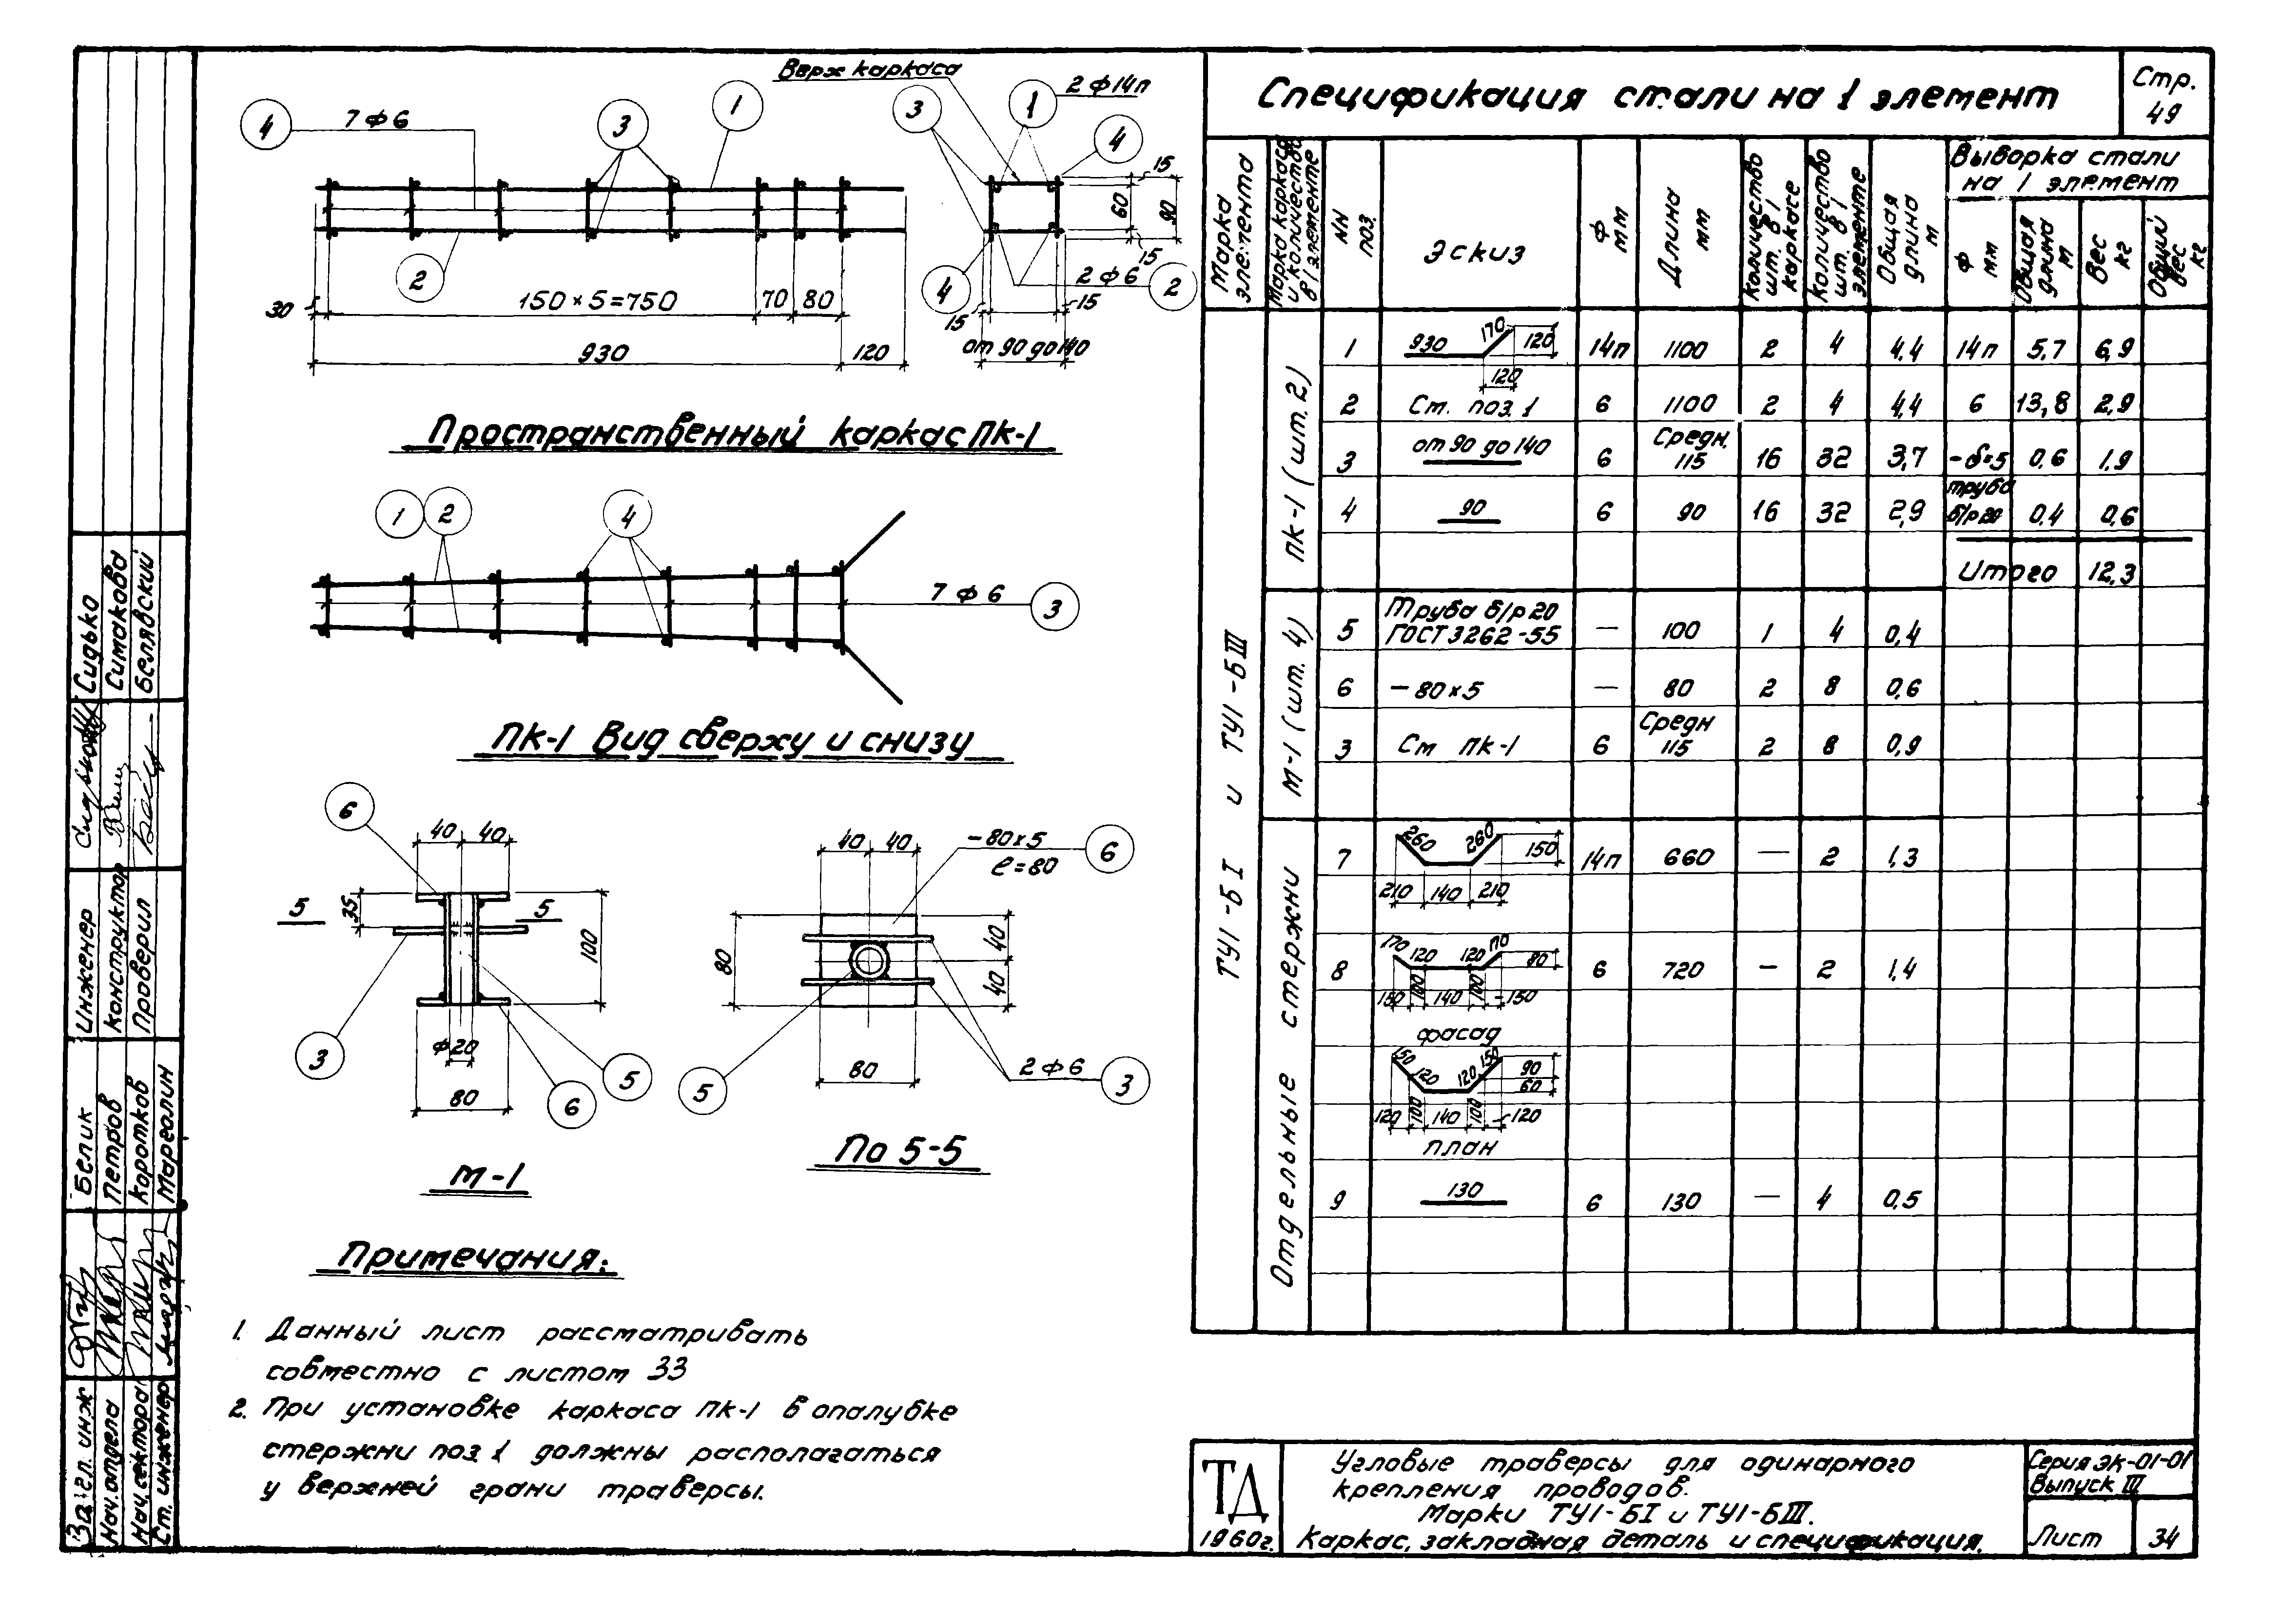 Верх каркаса
4
7 ф 6
3
1
3
1
2 ф 14п
4
15
60
90
15
2
4
2 ф 6
2
30
150 × 5 = 750
70
80
15
15
930
120
от 90 до 140
Пространственный каркас ПК-1
1
2
4
7 ф 6
3
ПК-1 Вид сверху и снизу
6
40
40
5
5
35
100
3
ф 20
5
80
6
М-1
40
40
- 80 × 5
ℓ = 80
6
80
40
40
5
80
2 ф 6
3
По 5-5
Примечания:
1. Данный лист рассматривать
совместно с листом 33
2. При установке каркаса ПК-1 в опалубке
стержни поз 1 должны располагаться
у верхней грани траверсы.
Спецификация стали на 1 элемент
Стр.
49
Марка элемента
Марка каркаса и количество в 1 элементе
NN поз.
Эскиз
Ф мм
Длина мм
Количество шт. в 1 каркасе
Количество шт. в 1 элементе
Общая длина м
Выборка стали
на 1 элемент
Ф мм
Общая длина м
Вес кг
Общий вес кг
ТУ1-БI и ТУ1-БIII
ПК-1 (шт. 2)
1 930 170 120 120 14п 1100 2 4 4,4 14п 5,7 6,9
2 Ст. поз. 1 6 1100 2 4 4,4 6 13,8 2,9
3 от 90 до 140 6 Средн. 115 16 32 3,7 - δ=5 0,6 1,9
4 90 6 90 16 32 2,9 труба б/р 20 0,4 0,6
Итого 12,3
М-1 (шт. 4)
5 Труба б/р 20 ГОСТ 3262-55 — 100 1 4 0,4
6 - 80 × 5 — 80 2 8 0,6
3 См ПК-1 6 Средн 115 2 8 0,9
Отдельные стержни
7 260 260 150 210 140 210 14п 660 — 2 1,3
8 170 120 120 170 80 150 100 140 100 150 6 720 — 2 1,4
фасад
150 120 120 150 90 60
120 100 140 100 120
план
9 130 6 130 — 4 0,5
ТД
1960г.
Угловые траверсы для одинарного
крепления проводов.
Марки ТУ1-БI и ТУ1-БIII.
Каркас, закладная деталь и спецификация.
Серия ЭК-01-01
Выпуск III
Лист
34
Сидько
Симакова
Белявский
Инженер
Конструктор
Проверил
Белик
Петров
Коротков
Марголин
Зам. гл. инж
Нач. отдела
Нач. сектора
Ст. инженер